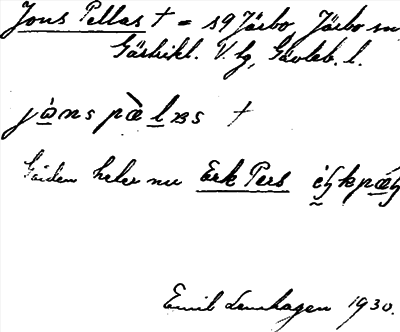 Jons Pellas † = s9 Järbo Järbo sn
Gästrikl. V. tg, Gävleb. l.
jɷ̀ns pæ̀las †
Gården heter nu Erk Pers
Emil Lenhagen 1930.